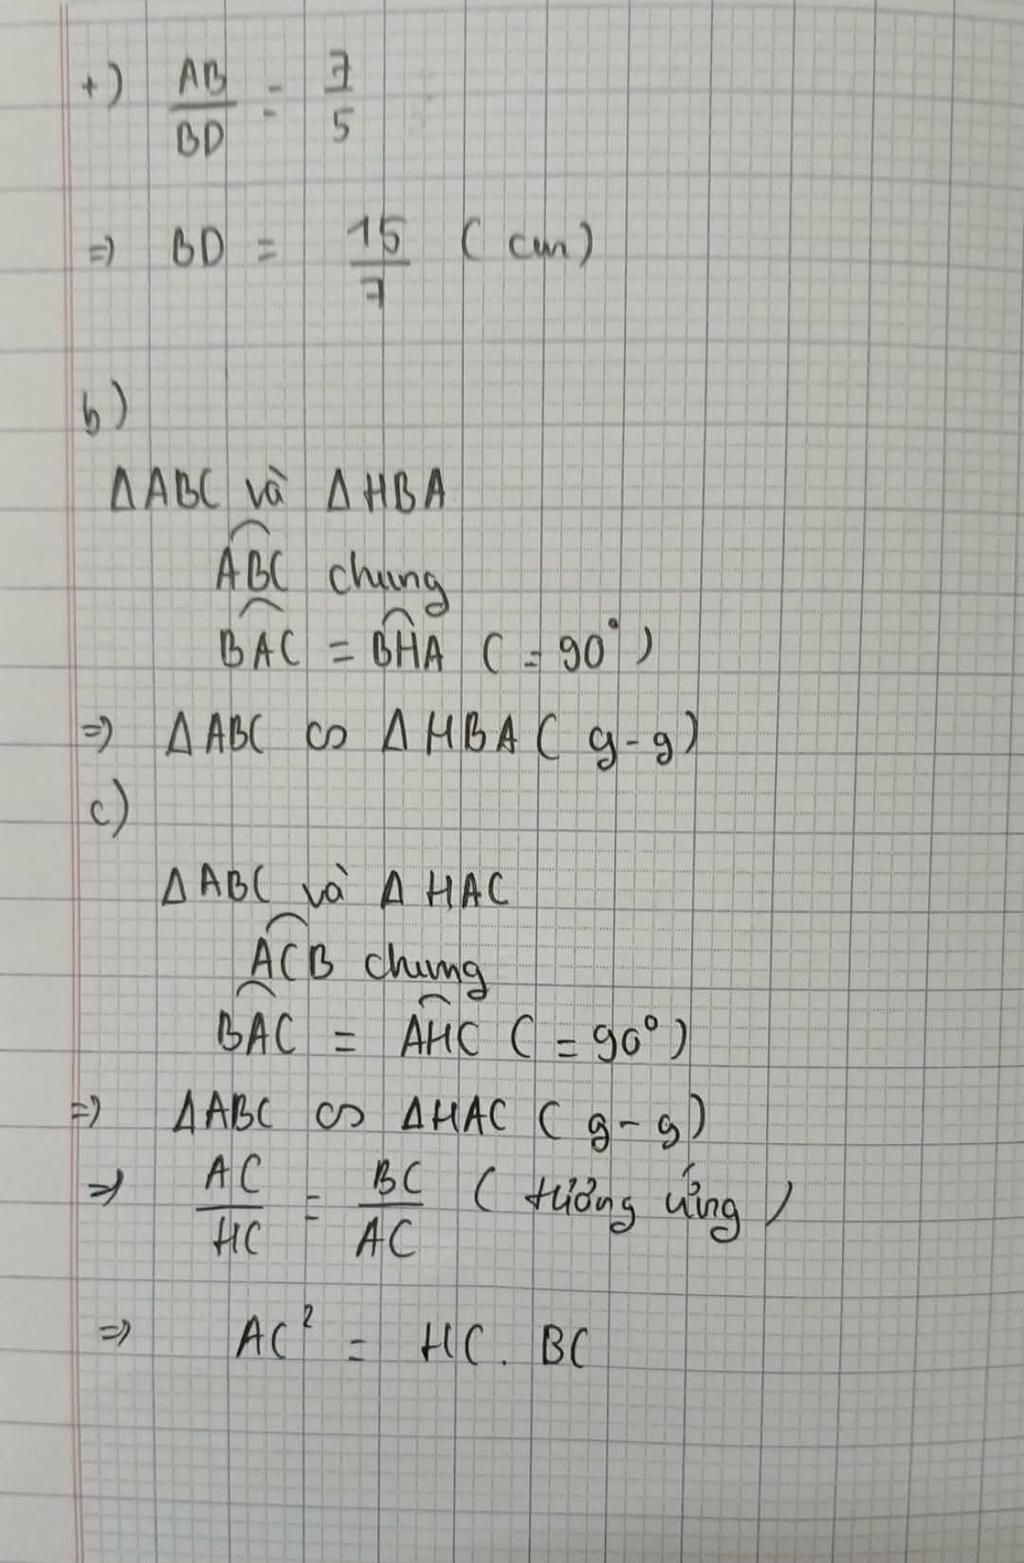 +) AB/BD = 7/5
=> BD = 15/7 (cm)
b)
ΔABC và ΔHBA
\widehat{ABC} chung
\widehat{BAC} = \widehat{BHA} (= 90°)
=> ΔABC ∽ ΔHBA (g-g)
c)
ΔABC và ΔHAC
\widehat{ACB} chung
\widehat{BAC} = \widehat{AHC} (= 90°)
=> ΔABC ∽ ΔHAC (g-g)
=> AC/HC = BC/AC (tương ứng)
=> AC² = HC . BC